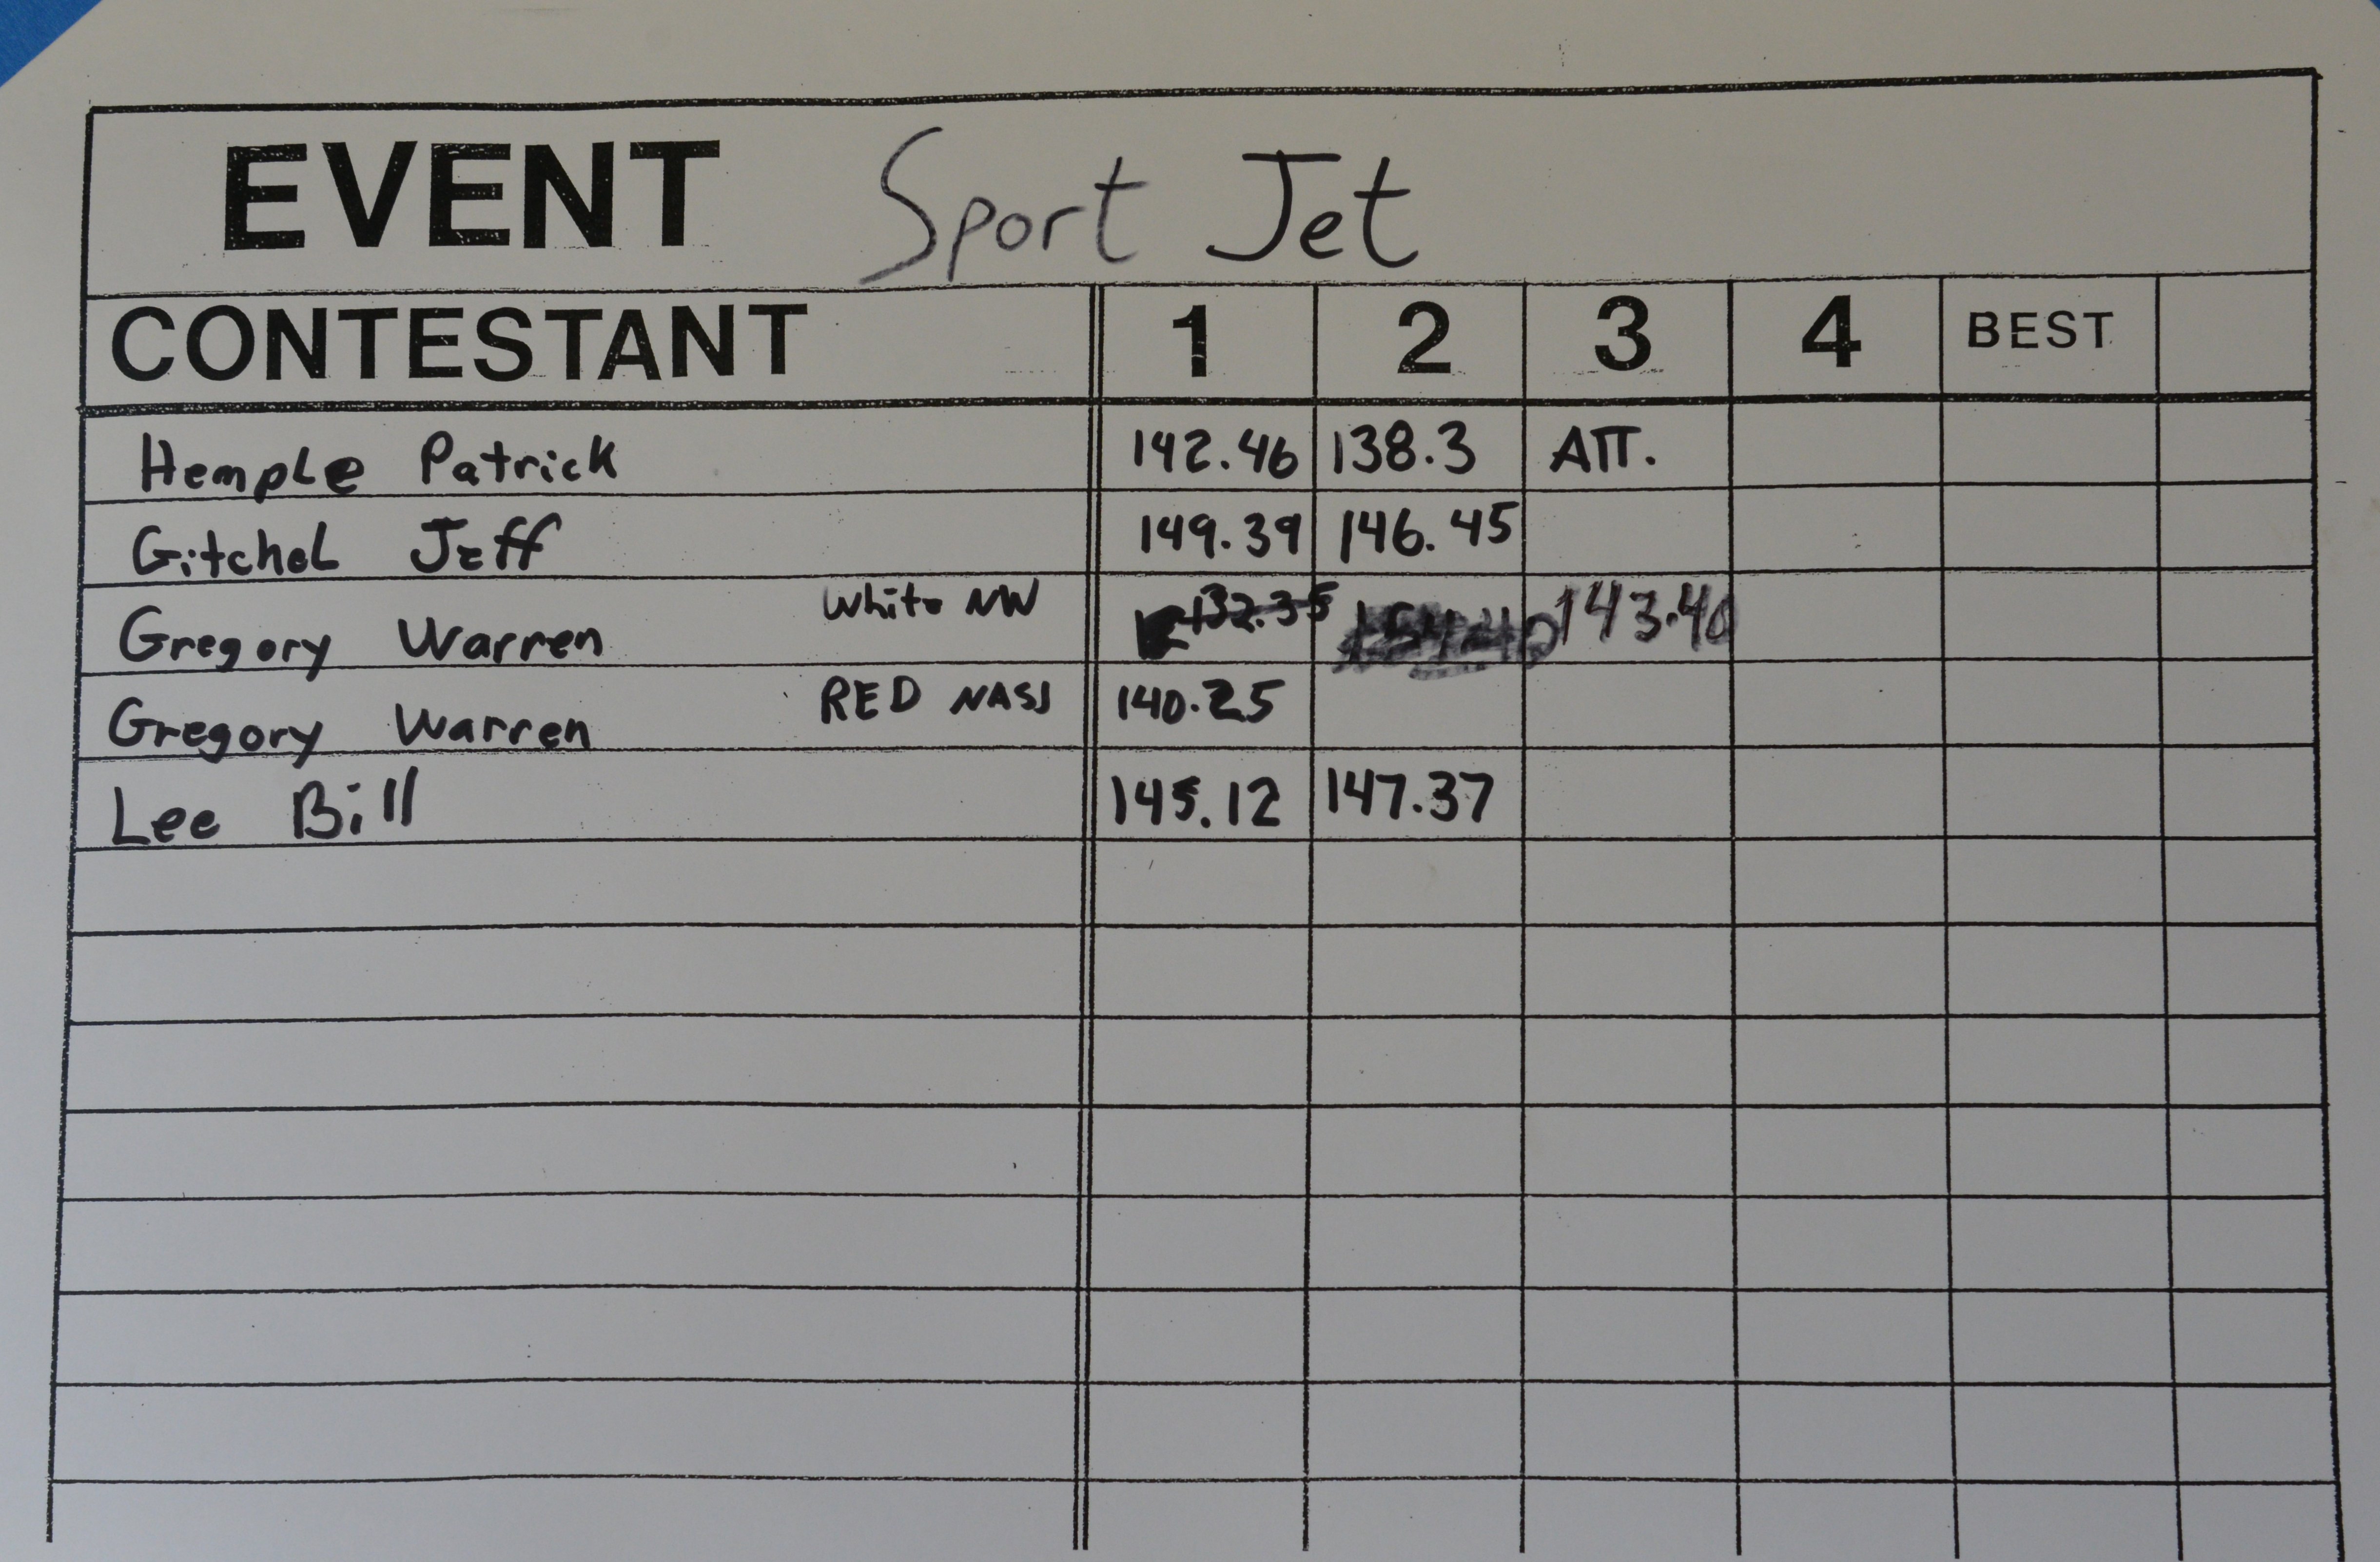 EVENT Sport Jet
CONTESTANT 1 2 3 4 BEST
Hemple Patrick 142.46 138.3 ATT.
Gitchel Jeff 149.39 146.45
Gregory Warren White NW 132.35 143.40
Gregory Warren RED NASJ 140.25
Lee Bill 145.12 147.37